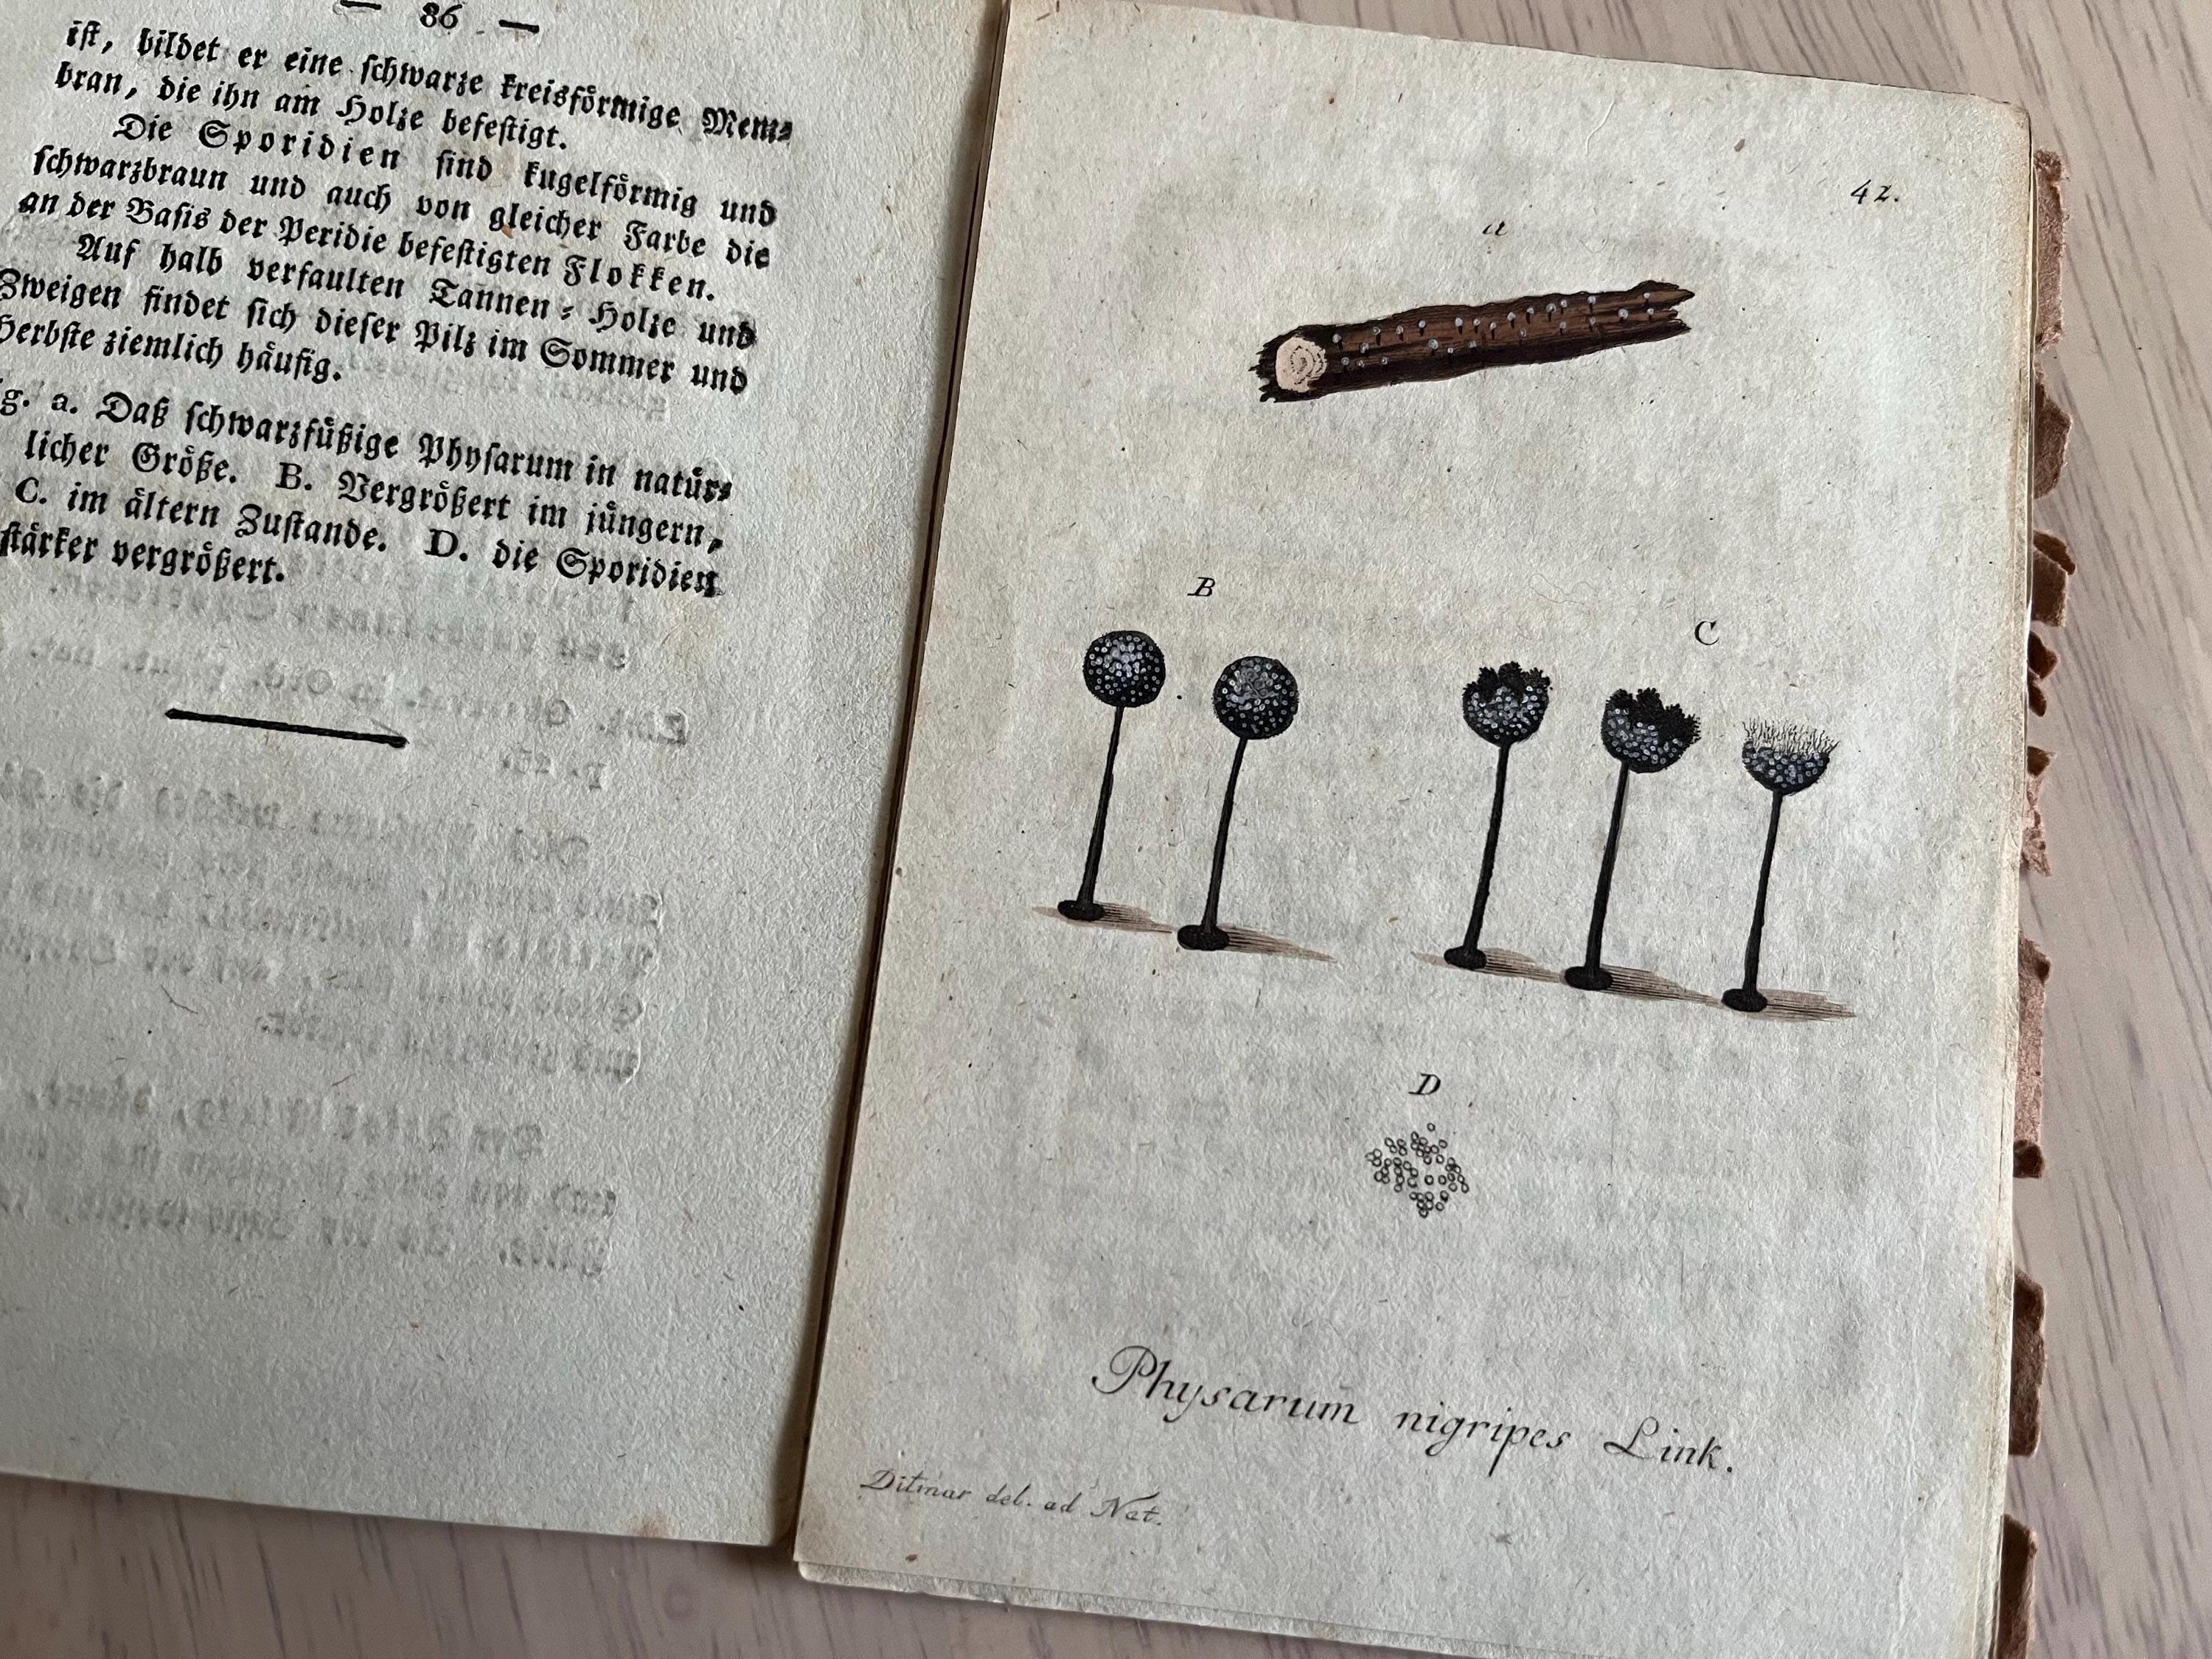 — 86 —
ist, bildet er eine schwarze kreisförmige Mem-
bran, die ihn am Holze befestigt.
Die Sporidien sind kugelförmig und
schwarzbraun und auch von gleicher Farbe die
an der Basis der Peridie befestigten Flokken.
Auf halb verfaulten Tannen-Holze und
Zweigen findet sich dieser Pilz im Sommer und
Herbste ziemlich häufig.
g. a. Daß schwarzfüßige Physarum in natür-
licher Größe. B. Vergrößert im jüngern,
C. im ältern Zustande. D. die Sporidien
stärker vergrößert.
42.
a
B
C
D
Physarum nigripes Link.
Ditmar del. ad Nat.